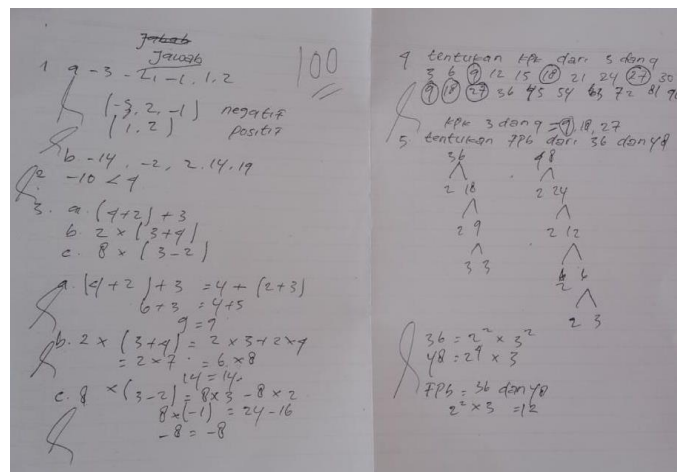 Jawab
100
1. a -3 -2, -1, 1, 2
(-3, 2, -1) negatif
(1, 2) positif
b -14, -2, 2. 14. 19
2. -10 < 4
3. a. (4+2) + 3
b. 2 × (3+4)
c. 8 × (3-2)
a. (4+2) + 3 = 4 + (2+3)
6+3 = 4+5
9 = 9
b. 2 × (3+4) = 2 × 3 + 2 × 4
= 2 × 7 = 6 × 8
14 = 14
c. 8 × (3-2) = 8×3 - 8×2
8×(-1) = 24-16
-8 = -8
4 tentukan kpk dari 3 dan 9
3 6 9 12 15 18 21 24 27 30
9 18 27 36 45 54 63 72 81 90
kpk 3 dan 9 = 9, 18, 27
5. tentukan FPB dari 36 dan 48
36 48
2 18 2 24
2 9 2 12
3 3 2 6
2 3
36 = 2² × 3²
48 = 2⁴ × 3
FPB = 36 dan 48
2² × 3 = 12